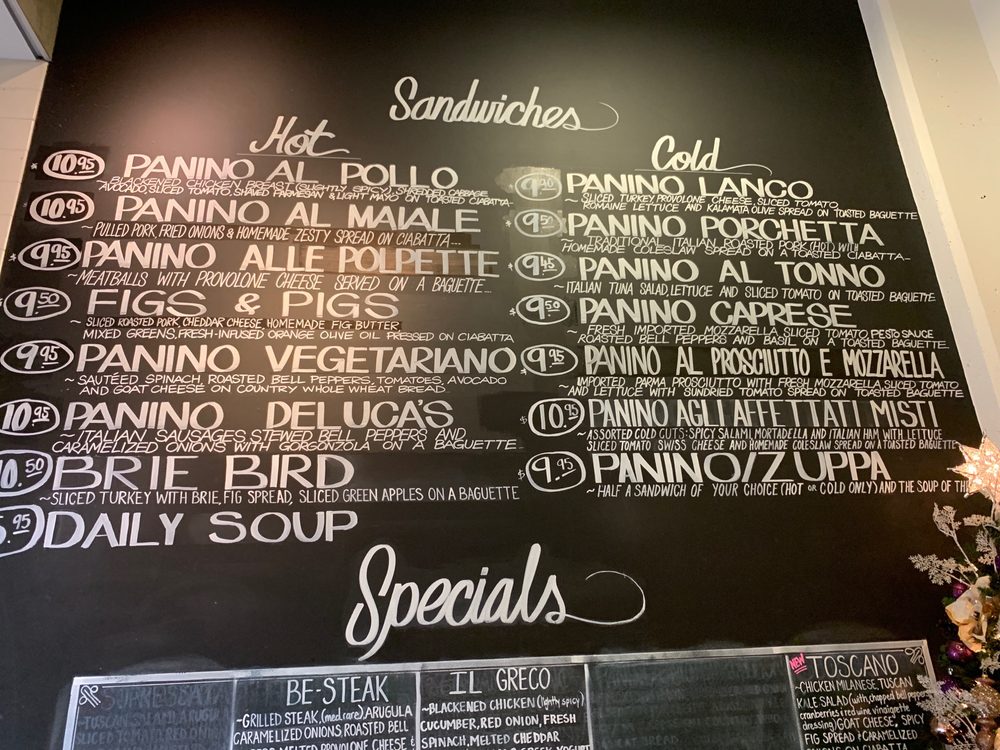 Sandwiches
Hot
$ 10.95 PANINO AL POLLO
~ BLACKENED CHICKEN BREAST (SLIGHTLY SPICY), SHREDDED CABBAGE
AVOCADO, SLICED TOMATO, SHAVED PARMESAN & LIGHT MAYO ON TOASTED CIABATTA-
10.95 PANINO AL MAIALE
~ PULLED PORK, FRIED ONIONS & HOMEMADE ZESTY SPREAD ON CIABATTA...
$ 9.95 PANINO ALLE POLPETTE
~MEATBALLS WITH PROVOLONE CHEESE SERVED ON A BAGUETTE...
9.50 FIGS & PIGS
~ SLICED ROASTED PORK, CHEDDAR CHEESE, HOMEMADE FIG BUTTER
MIXED GREENS, FRESH-INFUSED ORANGE OLIVE OIL PRESSED ON CIABATTA
9.95 PANINO VEGETARIANO
~ SAUTÉED SPINACH, ROASTED BELL PEPPERS, TOMATOES, AVOCADO
AND GOAT CHEESE ON COUNTRY WHOLE WHEAT BREAD.
10.95 PANINO DELUCA'S
~ ITALIAN SAUSAGES, STEWED BELL PEPPERS AND
CARAMELIZED ONIONS WITH GORGONZOLA ON A BAGUETTE
10.50 BRIE BIRD
~SLICED TURKEY WITH BRIE, FIG SPREAD, SLICED GREEN APPLES ON A BAGUETTE
.95 DAILY SOUP
Cold
PANINO LANCO
~ SLICED TURKEY, PROVOLONE CHEESE, SLICED TOMATO
ROMAINE LETTUCE AND KALAMATA OLIVE SPREAD ON TOASTED BAGUETTE
$ 9.50 PANINO PORCHETTA
~ TRADITIONAL ITALIAN ROASTED PORK (HOT) WITH
HOMEMADE COLESLAW SPREAD ON A TOASTED CIABATTA-
$ 9.45 PANINO AL TONNO
~ITALIAN TUNA SALAD, LETTUCE AND SLICED TOMATO ON TOASTED BAGUETTE
$ 9.50 PANINO CAPRESE
~ FRESH IMPORTED MOZZARELLA, SLICED TOMATO, PESTO SAUCE
ROASTED BELL PEPPERS AND BASIL ON A TOASTED BAGUETTE
$ 9.95 PANINO AL PROSCIUTTO E MOZZARELLA
~ IMPORTED PARMA PROSCIUTTO WITH FRESH MOZZARELLA, SLICED TOMATO
AND LETTUCE WITH SUNDRIED TOMATO SPREAD ON TOASTED BAGUETTE
$ 10.95 PANINO AGLI AFFETTATI MISTI
~ ASSORTED COLD CUTS: SPICY SALAMI, MORTADELLA AND ITALIAN HAM WITH LETTUCE
SLICED TOMATO SWISS CHEESE AND HOMEMADE COLESLAW SPREAD ON A TOASTED BAGUETTE
$ 9.95 PANINO/ZUPPA
~ HALF A SANDWICH OF YOUR CHOICE (HOT OR COLD ONLY) AND THE SOUP OF
Specials
BE-STEAK
~GRILLED STEAK, (med.rare) ARUGULA
CARAMELIZED ONIONS, ROASTED BELL
MELTED PROVOLONE CHEESE &
IL GRECO
~BLACKENED CHICKEN (lightly spicy)
CUCUMBER, RED ONION, FRESH
SPINACH, MELTED CHEDDAR
NEW TOSCANO
~CHICKEN MILANESE, TUSCAN
KALE SALAD (with, chopped bell peppers
cranberries & red wine vinaigrette
dressing) GOAT CHEESE, SPICY
FIG SPREAD & CARAMELIZED